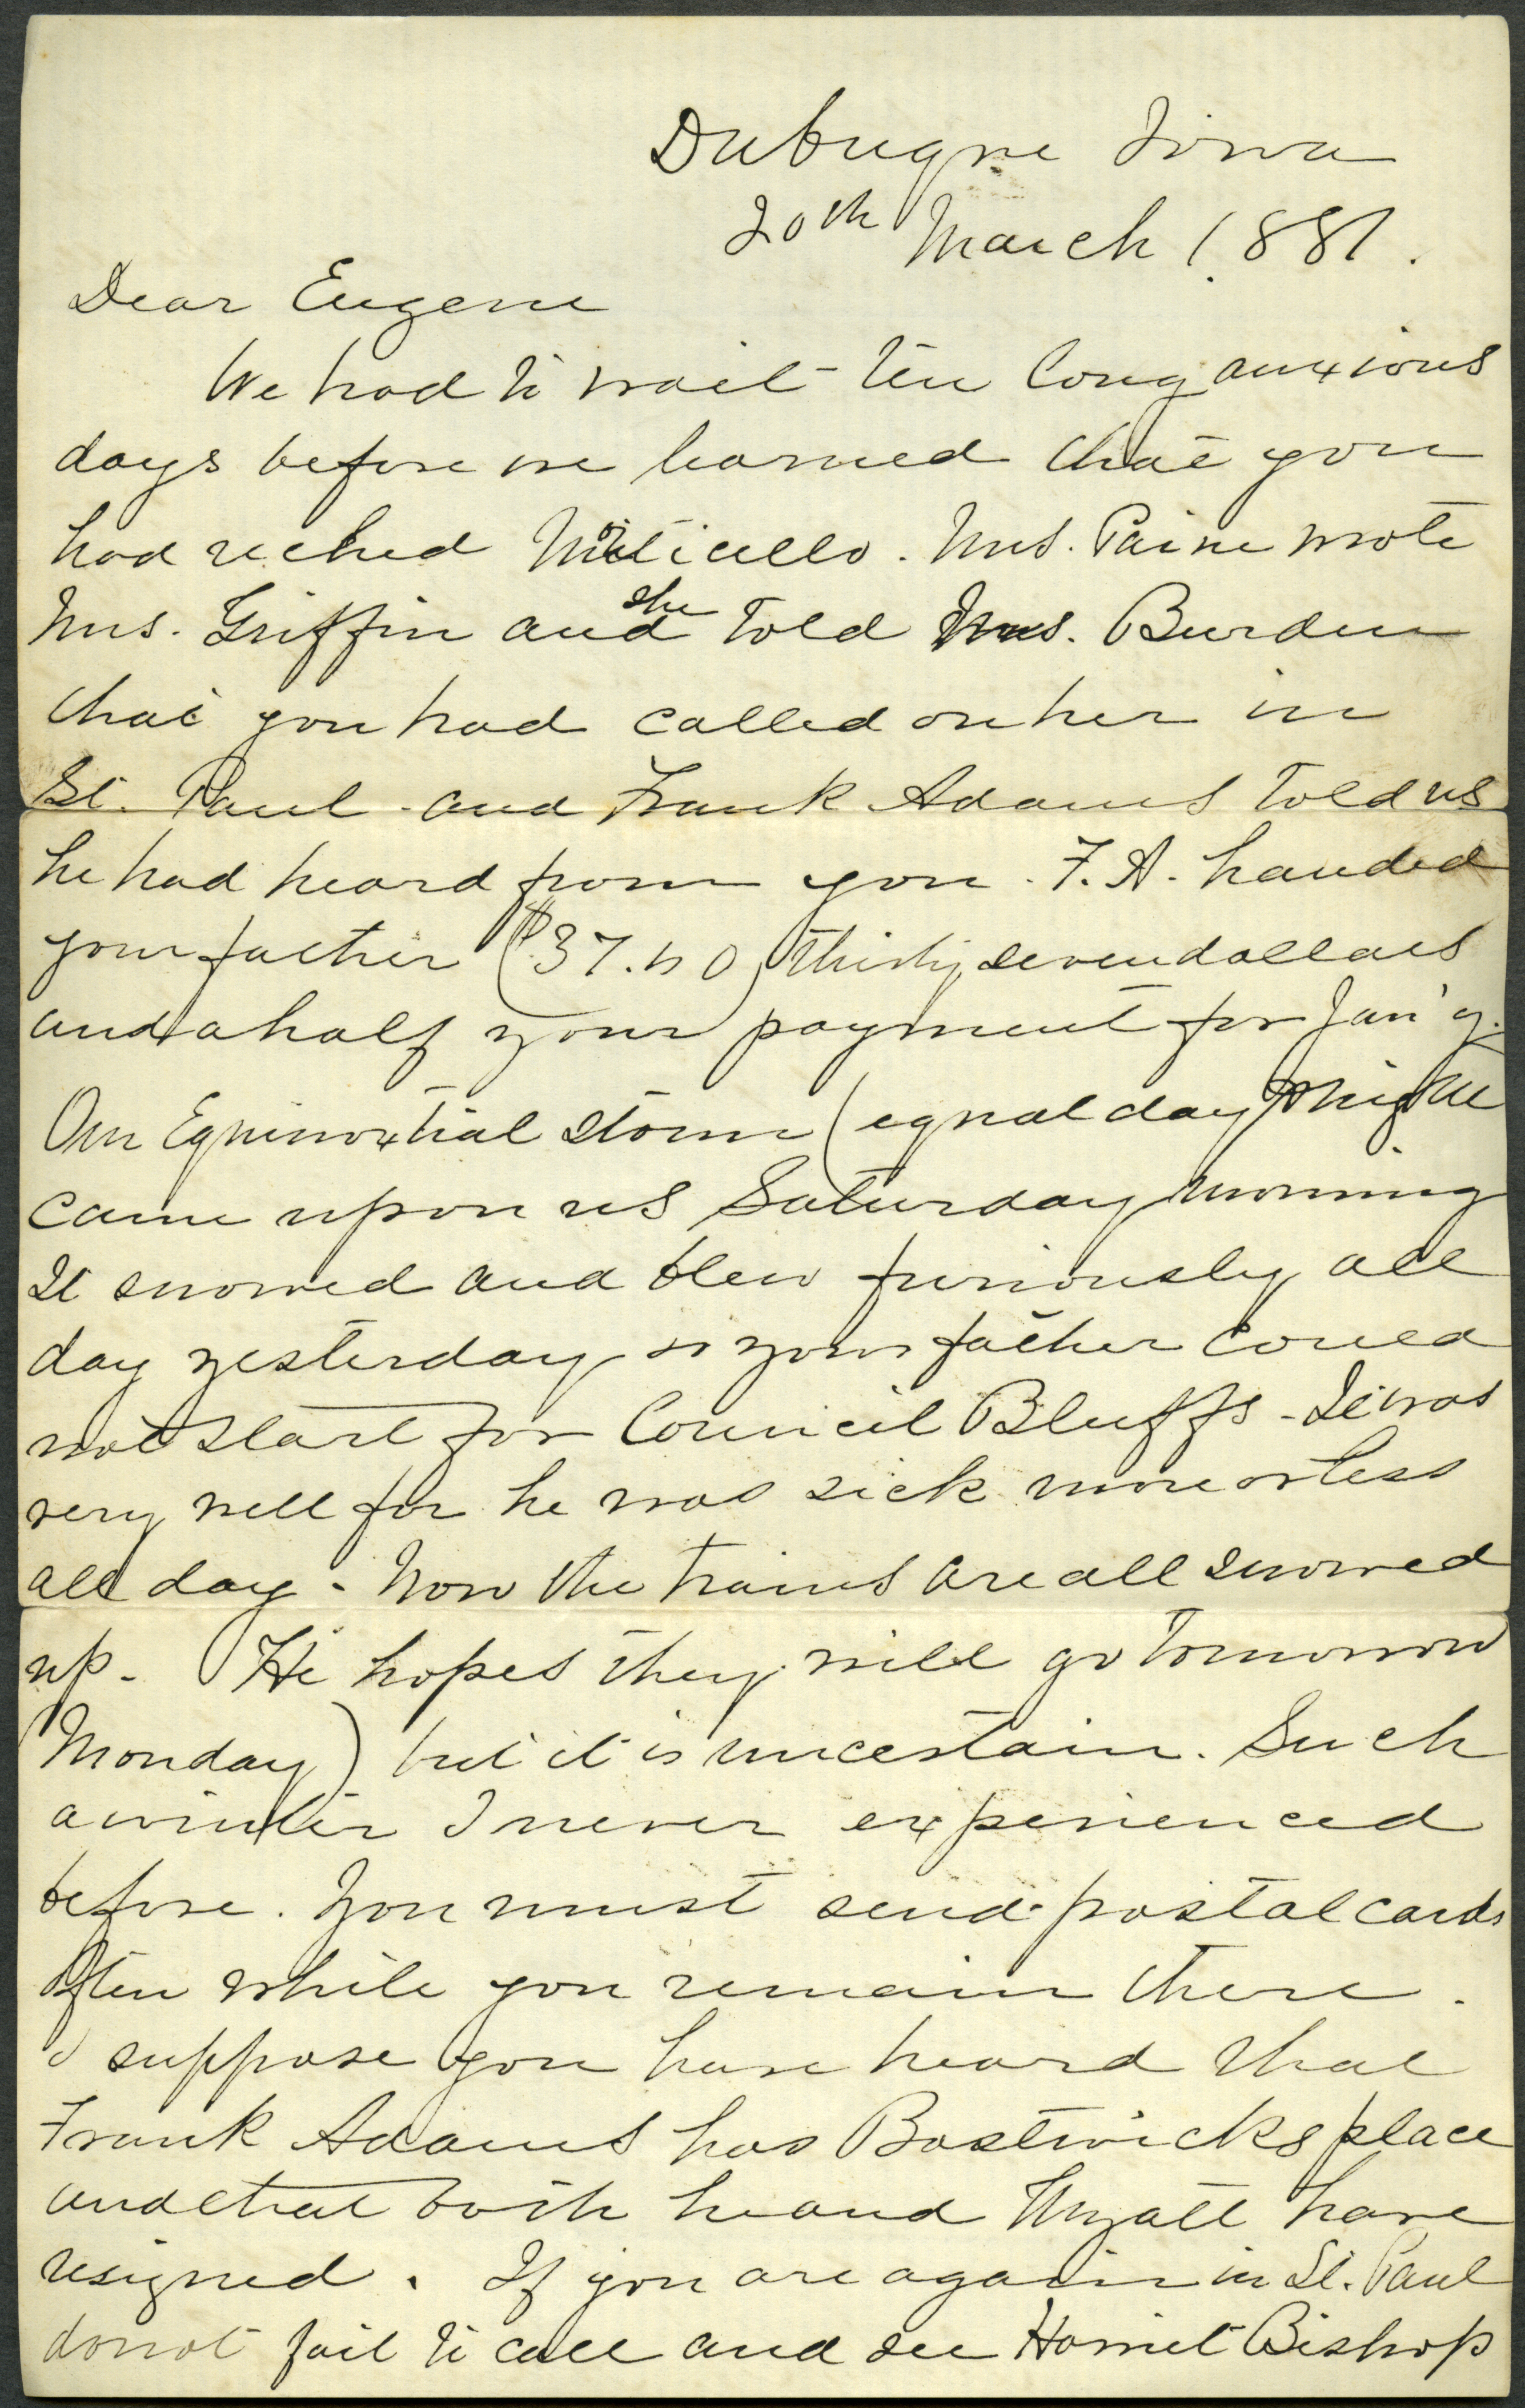 Dubuque Iowa
20th March 1881.
Dear Eugene
We had to wait ten long anxious
days before we learned that you
had reched Miticello. Mrs. Paine wrote
Mrs. Griffin and she told Mrs. Burden
that you had called on her in
St. Paul - and Frank Adams told us
he had heard from you. F. A. handed
your father ($37.50) thirty seven dollars
and a half your payment for Jan'y.
Our Equinoxtial storm (equal day & night
came upon us Saturday morning
It snowed and blew furiously all
day yesterday so your father could
not start for Council Bluffs - It was
very well for he was sick more or less
all day - Now the trains are all snowed
up - He hopes they will go tomorrow
(Monday) but it is uncertain. Such
a winter I never experienced
before. You must send postal cards
often while you remain there.
I suppose you have heard that
Frank Adams has Bostwicks place
and that both he and Wyatt have
resigned. If you are again in St. Paul
do not fail to call and see Harriet Bishop